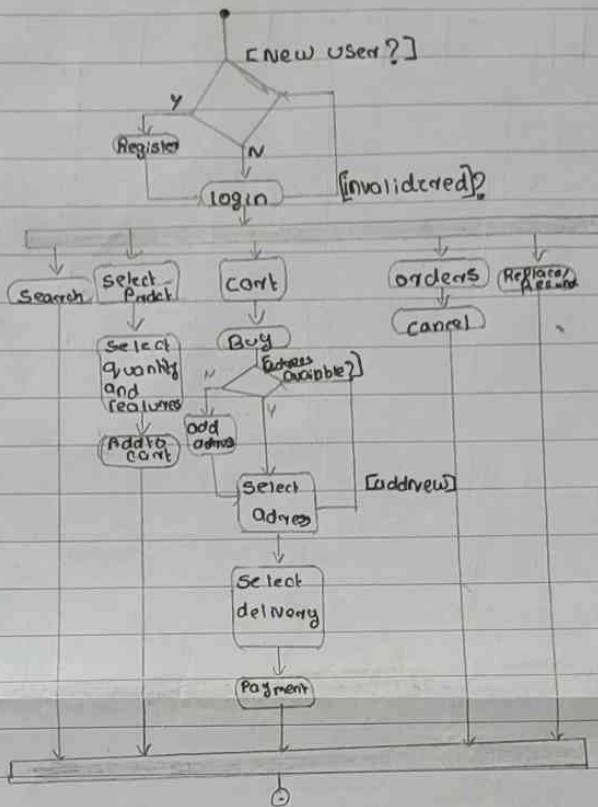 [New User?]
Y
Register
N
login
[invalidcred]?
Search
Select
Prodct
Cart
orders
Replace/
Select
quantity
and
features
Buy
Cancel
[adress
avaible?]
N
Y
Add to
cart
add
adres
Select
adres
[addnew]
Select
delivery
Payment